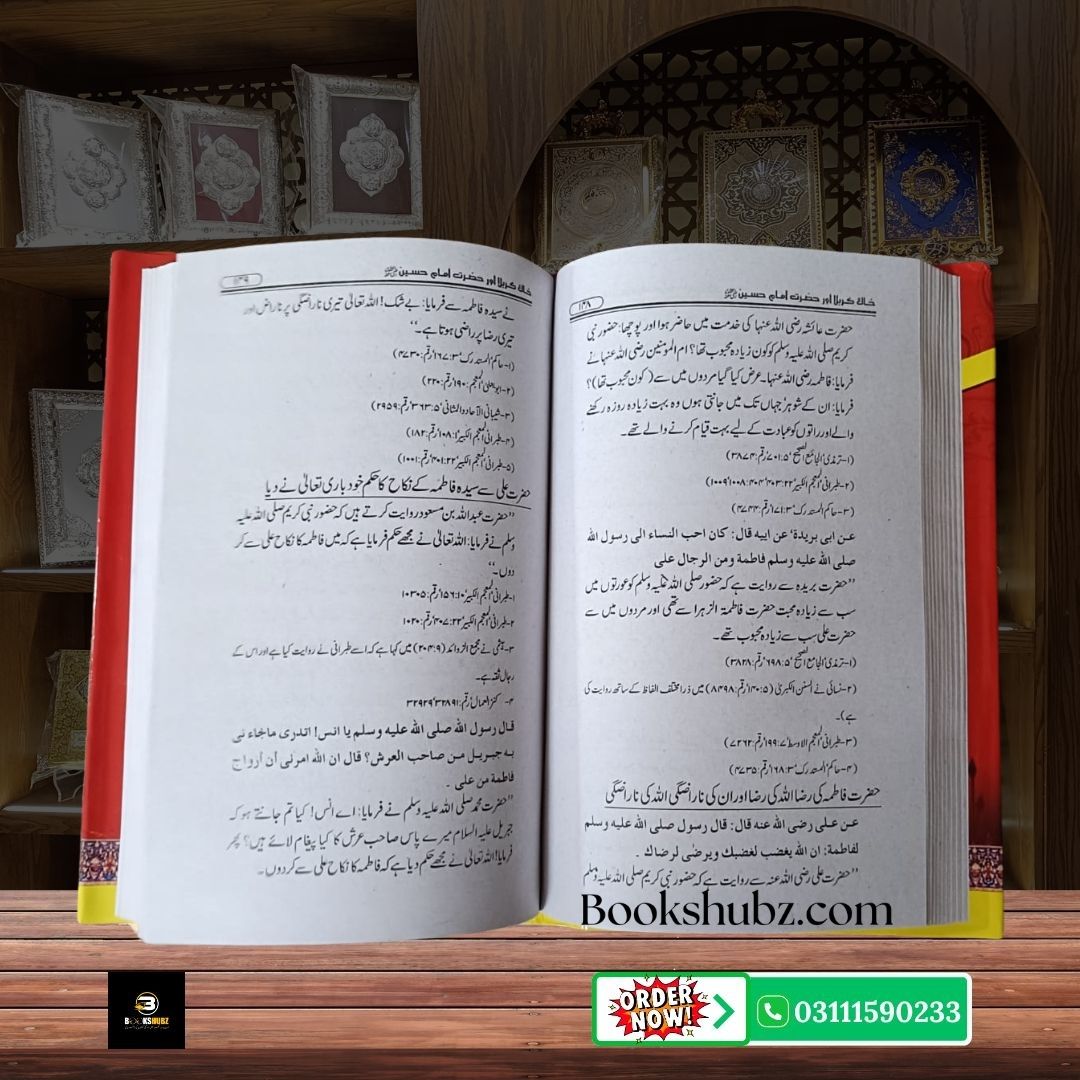 خاک کربلا اور حضرت امام حسین
۱۳۸
حضرت عائشہ رضی اللہ عنہا کی خدمت میں حاضر ہوا اور پوچھا: حضور نبی
کریم صلی اللہ علیہ وسلم کو کون زیادہ محبوب تھا؟ ام المؤمنین رضی اللہ عنہا نے
فرمایا: فاطمہ رضی اللہ عنہا۔ عرض کیا گیا مردوں میں سے (کون محبوب تھا)؟
فرمایا: ان کے شوہر' جہاں تک میں جانتی ہوں وہ بہت زیادہ روزہ رکھنے
والے اور راتوں کو عبادت کے لیے بہت قیام کرنے والے تھے۔
(۱- ترمذی' الجامع الصحیح' ۵: ۷۰۱' رقم: ۳۸۷۴)
(۲- طبرانی' المعجم الکبیر' ۲۲: ۴۰۳' ۴۰۴' رقم: ۱۰۰۸' ۱۰۰۹)
(۳- حاکم' المستدرک' ۳: ۱۷۱' رقم: ۴۷۴۴)
عن ابی بریدة' عن ابیه قال: کان احب النساء الی رسول الله
صلی الله علیه وسلم فاطمة ومن الرجال علی
''حضرت بریدہ سے روایت ہے کہ حضور صلی اللہ علیہ وسلم کو عورتوں میں
سب سے زیادہ محبت حضرت فاطمۃ الزہرا سے تھی اور مردوں میں سے
حضرت علی سب سے زیادہ محبوب تھے۔
(۱- ترمذی' الجامع الصحیح' ۵: ۶۹۸' رقم: ۳۸۶۸)
(۲- نسائی نے السنن الکبریٰ (۵: ۱۴۰' رقم: ۸۴۹۸) میں ذرا مختلف الفاظ کے ساتھ روایت کی
ہے)۔
(۳- طبرانی' المعجم الاوسط' ۷: ۱۹۹' رقم: ۷۲۶۲)
(۴- حاکم' المستدرک' ۳: ۱۶۸' رقم: ۴۷۳۵)
حضرت فاطمہ کی رضا اللہ کی رضا اور ان کی ناراضگی اللہ کی ناراضگی
عن علی رضی الله عنه قال: قال رسول صلی الله علیه وسلم
لفاطمة: ان الله یغضب لغضبك ویرضی لرضاك۔
''حضرت علی رضی اللہ عنہ سے روایت ہے کہ حضور نبی کریم صلی اللہ علیہ وسلم
خاک کربلا اور حضرت امام حسین
۱۳۹
نے سیدہ فاطمہ سے فرمایا: بے شک! اللہ تعالیٰ تیری ناراضگی پر ناراض اور
تیری رضا پر راضی ہوتا ہے۔''
(۱- حاکم' المستدرک' ۳: ۱۶۷' رقم: ۴۷۳۰)
(۲- ابو یعلیٰ' المعجم: ۱۹۰' رقم: ۲۲۰)
(۳- شیبانی' الآحاد والمثانی' ۵: ۳۶۳' رقم: ۲۹۵۹)
(۴- طبرانی' المعجم الکبیر' ۱: ۱۰۸' رقم: ۱۸۲)
(۵- طبرانی' المعجم الکبیر' ۲۲: ۴۰۱' رقم: ۱۰۰۱)
حضرت علی سے سیدہ فاطمہ کے نکاح کا حکم خود باری تعالیٰ نے دیا
''حضرت عبداللہ بن مسعود روایت کرتے ہیں کہ حضور نبی کریم صلی اللہ علیہ
وسلم نے فرمایا: اللہ تعالیٰ نے مجھے حکم فرمایا ہے کہ میں فاطمہ کا نکاح علی سے کر
دوں۔''
۱- طبرانی' المعجم الکبیر' ۱۰: ۱۵۶' رقم: ۱۰۳۰۵
۲- طبرانی' المعجم الکبیر' ۲۲: ۴۰۷' رقم: ۱۰۲۰
۳- ہیثمی نے مجمع الزوائد (۹: ۲۰۴) میں کہا ہے کہ اسے طبرانی نے روایت کیا ہے اور اس کے
رجال ثقہ ہے۔
۴- کنز العمال' رقم: ۳۲۸۹۱' ۳۲۹۲۹
قال رسول الله صلی الله علیه وسلم یا انس! اتدری ماجاء نی
به جبریل من صاحب العرش؟ قال ان الله امرنی أن أزواج
فاطمة من علی۔
''حضرت محمد صلی اللہ علیہ وسلم نے فرمایا: اے انس! کیا تم جانتے ہو کہ
جبریل علیہ السلام میرے پاس صاحب عرش کا کیا پیغام لائے ہیں؟ پھر
فرمایا! اللہ تعالیٰ نے مجھے حکم دیا ہے کہ فاطمہ کا نکاح علی سے کر دوں۔
Bookshubz.com
BOOKSHUBZ
ORDER NOW!
03111590233